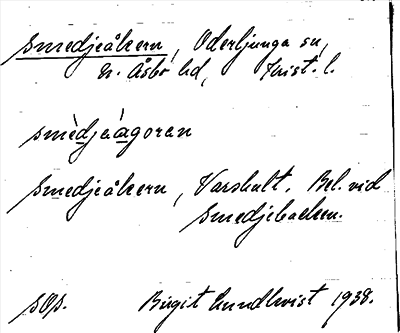 Smedjeåkern, Oderljunga sn,
n. Åsbo hd, Krist. l.
smèdjeàgoren
Smedjeåkern, Varshult. Bel. vid
Smedjebacken.
sOs. Birgit Lundkvist 1938.